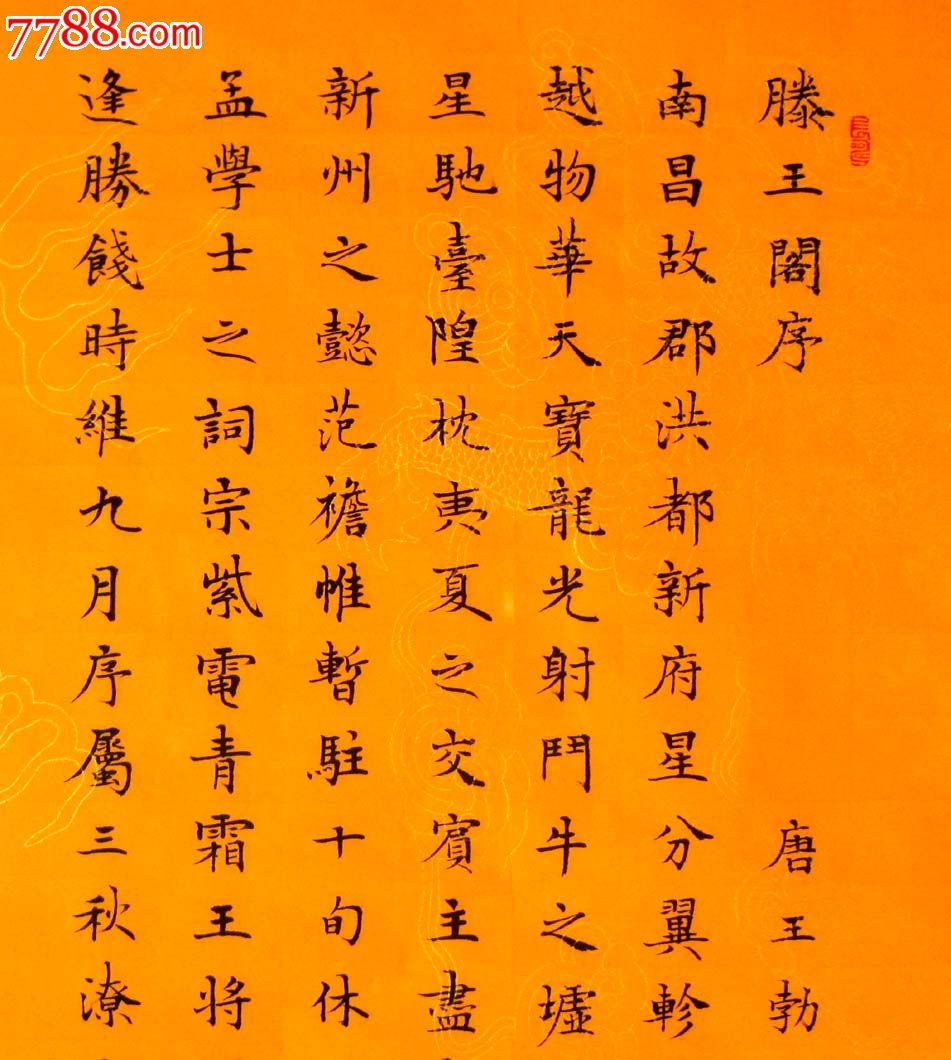 7788.com
滕王閣序 唐王勃
南昌故郡洪都新府星分翼軫
越物華天寶龍光射鬥牛之墟
星馳臺隍枕夷夏之交賓主盡
新州之懿范襜帷暫駐十旬休
孟學士之詞宗紫電青霜王將
逢勝餞時維九月序屬三秋潦